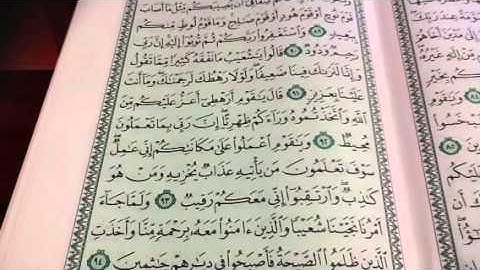 يُصِيبَكُم مِّثْلُ مَآ أَصَابَ
قَوْمَ نُوحٍ أَوْ قَوْمَ هُودٍ أَوْ قَوْمَ صَٰلِحٍ وَمَا قَوْمُ لُوطٍ مِّنكُم
بِبَعِيدٍ ٨٩ وَٱسْتَغْفِرُوا۟ رَبَّكُمْ ثُمَّ تُوبُوٓا۟ إِلَيْهِ إِنَّ رَبِّى
رَحِيمٌ وَدُودٌ ٩٠ قَالُوا۟ يَٰشُعَيْبُ مَا نَفْقَهُ كَثِيرًا مِّمَّا تَقُولُ
وَإِنَّا لَنَرَىٰكَ فِينَا ضَعِيفًا وَلَوْلَا رَهْطُكَ لَرَجَمْنَٰكَ وَمَآ أَنتَ
عَلَيْنَا بِعَزِيزٍ ٩١ قَالَ يَٰقَوْمِ أَرَهْطِىٓ أَعَزُّ عَلَيْكُم مِّنَ
ٱللَّهِ وَٱتَّخَذْتُمُوهُ وَرَآءَكُمْ ظِهْرِيًّا إِنَّ رَبِّى بِمَا تَعْمَلُونَ
مُحِيطٌ ٩٢ وَيَٰقَوْمِ ٱعْمَلُوا۟ عَلَىٰ مَكَانَتِكُمْ إِنِّى عَٰمِلٌ
سَوْفَ تَعْلَمُونَ مَن يَأْتِيهِ عَذَابٌ يُخْزِيهِ وَمَنْ هُوَ
كَٰذِبٌ وَٱرْتَقِبُوٓا۟ إِنِّى مَعَكُمْ رَقِيبٌ ٩٣ وَلَمَّا جَآءَ
أَمْرُنَا نَجَّيْنَا شُعَيْبًا وَٱلَّذِينَ ءَامَنُوا۟ مَعَهُۥ بِرَحْمَةٍ مِّنَّا وَأَخَذَتِ
ٱلَّذِينَ ظَلَمُوا۟ ٱلصَّيْحَةُ فَأَصْبَحُوا۟ فِى دِيَٰرِهِمْ جَٰثِمِينَ ٩٤